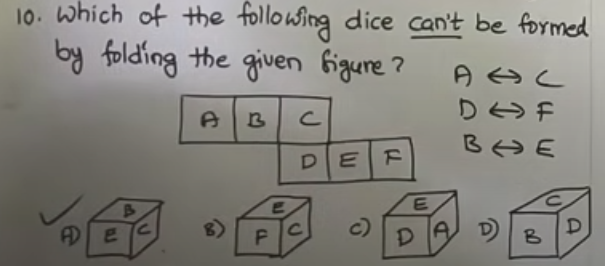 10. Which of the following dice can't be formed
by folding the given figure?
A ↔ C
D ↔ F
B ↔ E
A B C
D E F
A) B E C
B) E F C
C) E D A
D) C B D